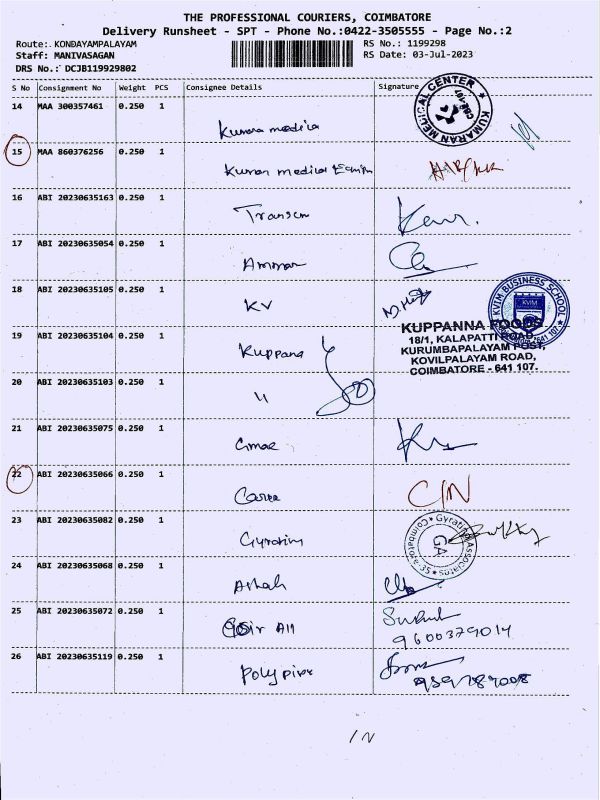 THE PROFESSIONAL COURIERS, COIMBATORE
Delivery Runsheet - SPT - Phone No.:0422-3505555 - Page No.:2
Route: KONDAYAMPALAYAM RS No.: 1199298
Staff: MANIVASAGAN RS Date: 03-Jul-2023
DRS No.: DCJB119929802
S No Consignment No Weight PCS Consignee Details Signature
14 MAA 300357461 0.250 1
KUMARAN MEDICAL CENTER
CBE-107
Kumara medica
15 MAA 860376256 0.250 1
Kumaran medical
16 ABI 20230635163 0.250 1
Transcm
17 ABI 20230635054 0.250 1
Ammar
18 ABI 20230635105 0.250 1
KV
KVIM BUSINESS SCHOOL
KVIM
641 107
19 ABI 20230635104 0.250 1
Kuppana
KUPPANNA FOODS
18/1, KALAPATTI ROAD,
KURUMBAPALAYAM POST,
KOVILPALAYAM ROAD,
COIMBATORE - 641 107.
20 ABI 20230635103 0.250 1
"
21 ABI 20230635075 0.250 1
22 ABI 20230635066 0.250 1
C/N
23 ABI 20230635082 0.250 1
Gyratim
Gyrating Associates
GA
Coimbatore-35
24 ABI 20230635068 0.250 1
25 ABI 20230635072 0.250 1
Sir All
9600379014
26 ABI 20230635119 0.250 1
Polypipes